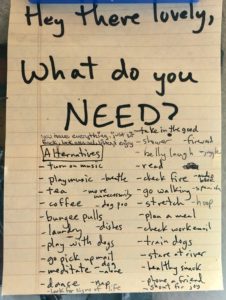 Hey there lovely,
What do you
NEED?
you have everything, just sit
back, look around, enjoy
take in the good
Alternatives
shower - forward
belly laugh - giggle
turn on music
read
play music - breathe
check fire
tea - more unnecessary
go walking - spanish
coffee - dog poo
stretch - hoop
bungee pulls
plan a meal
laundry - dishes
check work email
play with dogs
train dogs
go pick up mail
stare at river
meditate
healthy snack
dance - nap
phone a friend
look for signs of life
shout for joy